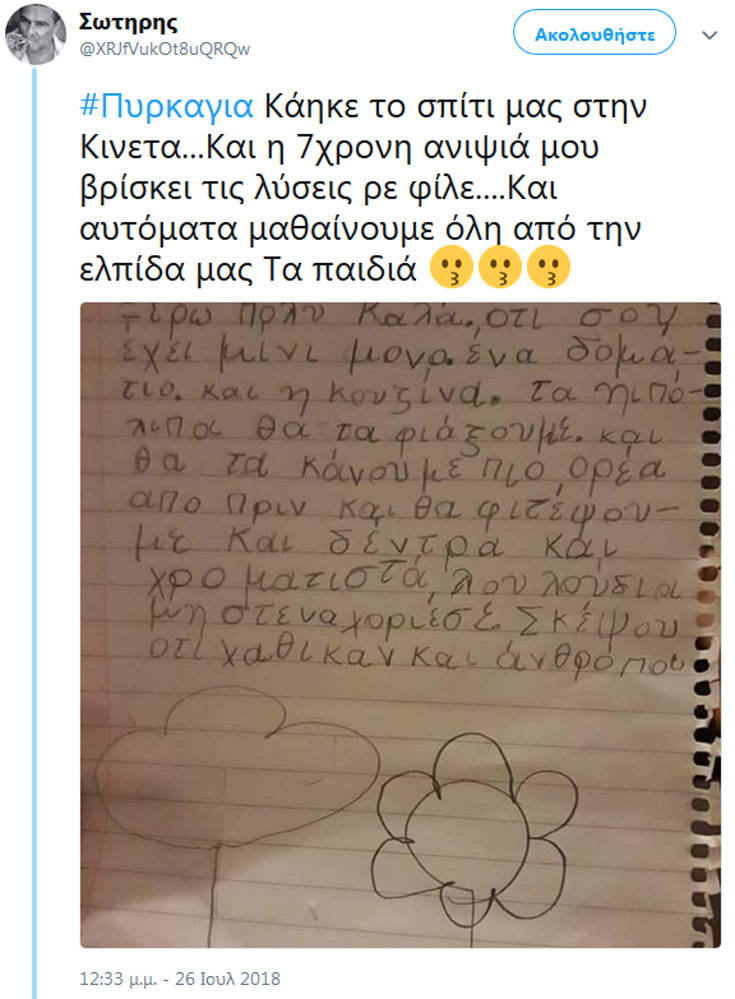 Σωτηρης
@XRJfVukOt8uQRQw
Ακολουθήστε
#Πυρκαγια Κάηκε το σπίτι μας στην
Κινετα...Και η 7χρονη ανιψιά μου
βρίσκει τις λύσεις ρε φίλε....Και
αυτόματα μαθαίνουμε όλη από την
ελπίδα μας Τα παιδιά 😗😗😗
ξέρω πολύ καλά. οτι σου
έχει μίνι μονο. ένα δομα-
τιο. και η κουζίνα. τα ηπό-
λιπα θα τα φιάξουμε. και
θα τα κάνουμε πιο ορέα
απο πριν και θα φιτέψου-
με και δέντρα και
χροματιστά λουλούδια
μη στεναχοριέσε. Σκέψου
οτι χαθικαν και άνθροποι
12:33 μ.μ. - 26 Ιουλ 2018